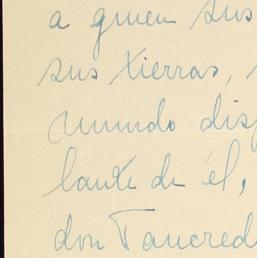 a quien sus
sus tierras,
mundo disp
lante de él,
don Tancred